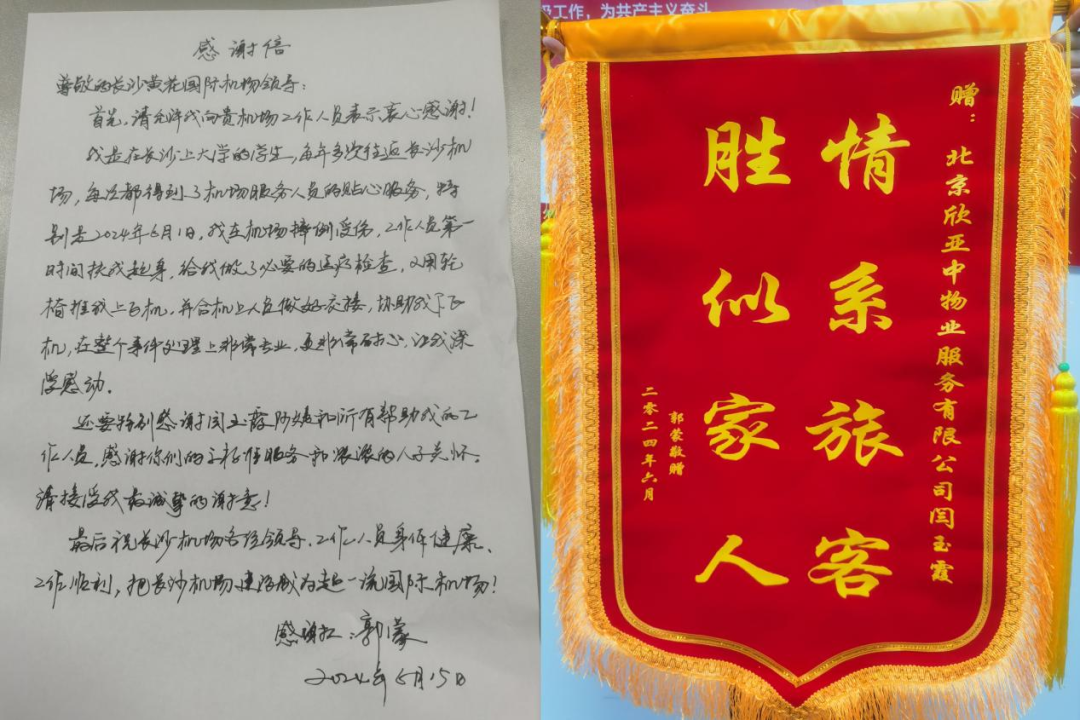 感谢信
尊敬的长沙黄花国际机场领导：
首先，请允许我向贵机场工作人员表示衷心感谢！
我是在长沙上大学的学生，每年多次往返长沙机
场，每次都得到了机场服务人员的贴心服务，特
别是2024年6月1日，我在机场摔倒受伤，工作人员第一
时间扶我起身，给我做了必要的医疗检查，又用轮
椅推我上飞机，并合机上人员做好交接，协助我下飞
机，在整个事件处理上非常专业，更非常耐心，让我深
深感动。
还要特别感谢闫玉霞 和所有帮助我的工
作人员，感谢你们的 服务和浓浓的人 关怀。
请接受我最诚挚的谢意！
最后祝长沙机场各位领导、工作人员身体健康、
工作顺利，把长沙机场建设成为超一流国际机场！
感谢人：郭蒙
2024年6月15日
级工作，为共产主义奋斗
赠：北京欣亚中物业服务有限公司闫玉霞
情系旅客
胜似家人
郭蒙敬赠
二零二四年六月